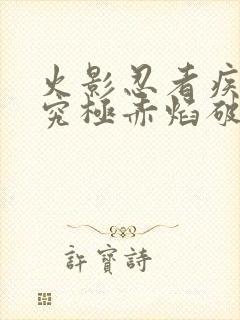 火影忍者疾
究極赤焰破
許寶詩